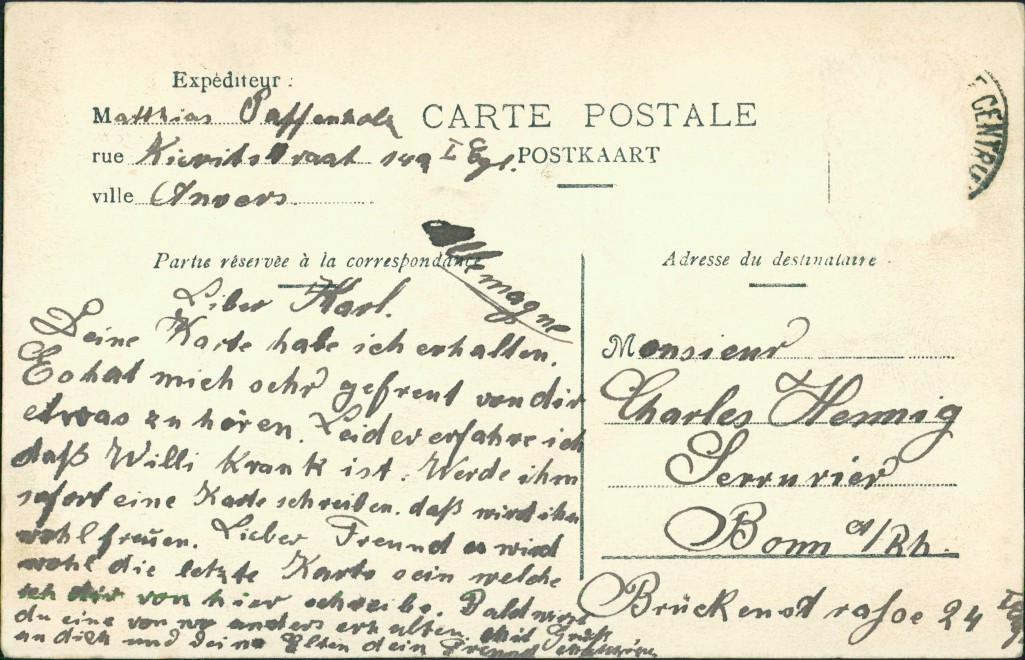 Expéditeur :
Matthias Paffenholz
rue Kievitstraat 149 I Etg.
ville Anvers.
CARTE POSTALE
POSTKAART
CENTRU
Partie réservée à la correspondance
Allemagne
Liber Karl.
Deine Karte habe ich erhalten.
Es hat mich sehr gefreut von dir
etwas zu hören. Leider erfahre ich
daß Willi Krank ist. Werde ihm
sofort eine Karte schreiben. daß wird ihn
wohl freuen. Lieber Freund es wird
wohl die letzte Karte sein welche
ich dir von hier schreibe. Bald wirst
du eine von wo anders erhalten. Mit Gruß
an dich und deine Elten dein Freund Matthias
Adresse du destinataire
Monsieur
Charles Hennig
Serrurier
Bonn a/Rh.
Brückenstrasse 24